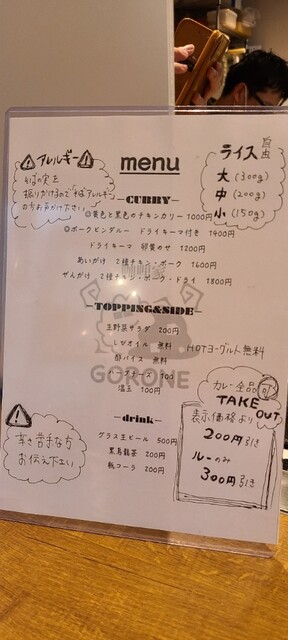 アレルギー
そばの実を
振りかけるので「そばアレルギー」
の方お声かけ下さい
menu
ライス 自由
大 (300g)
中 (200g)
小 (150g)
—CURRY—
◎黄色と黒色のチキンカリー 1000円
◎ポークビンダルー ドライキーマ付き 1400円
ドライキーマ 卵黄のせ 1200円
あいがけ 2種チキン・ポーク 1600円
ぜんがけ 2種チキン・ポーク・ドライ 1800円
—TOPPING&SIDE—
生野菜サラダ 200円
しびオイル 無料
HOTヨーグルト無料
酢パイス 無料
パープチーズ 100
温玉 100円
GORONE
カレー全品可
TAKE OUT
表示価格より
200円引き
ルーのみ
300円引き
辛さ苦手な方
お伝え下さい
—drink—
グラス生ビール 500円
黒烏龍茶 200円
瓶コーラ 200円